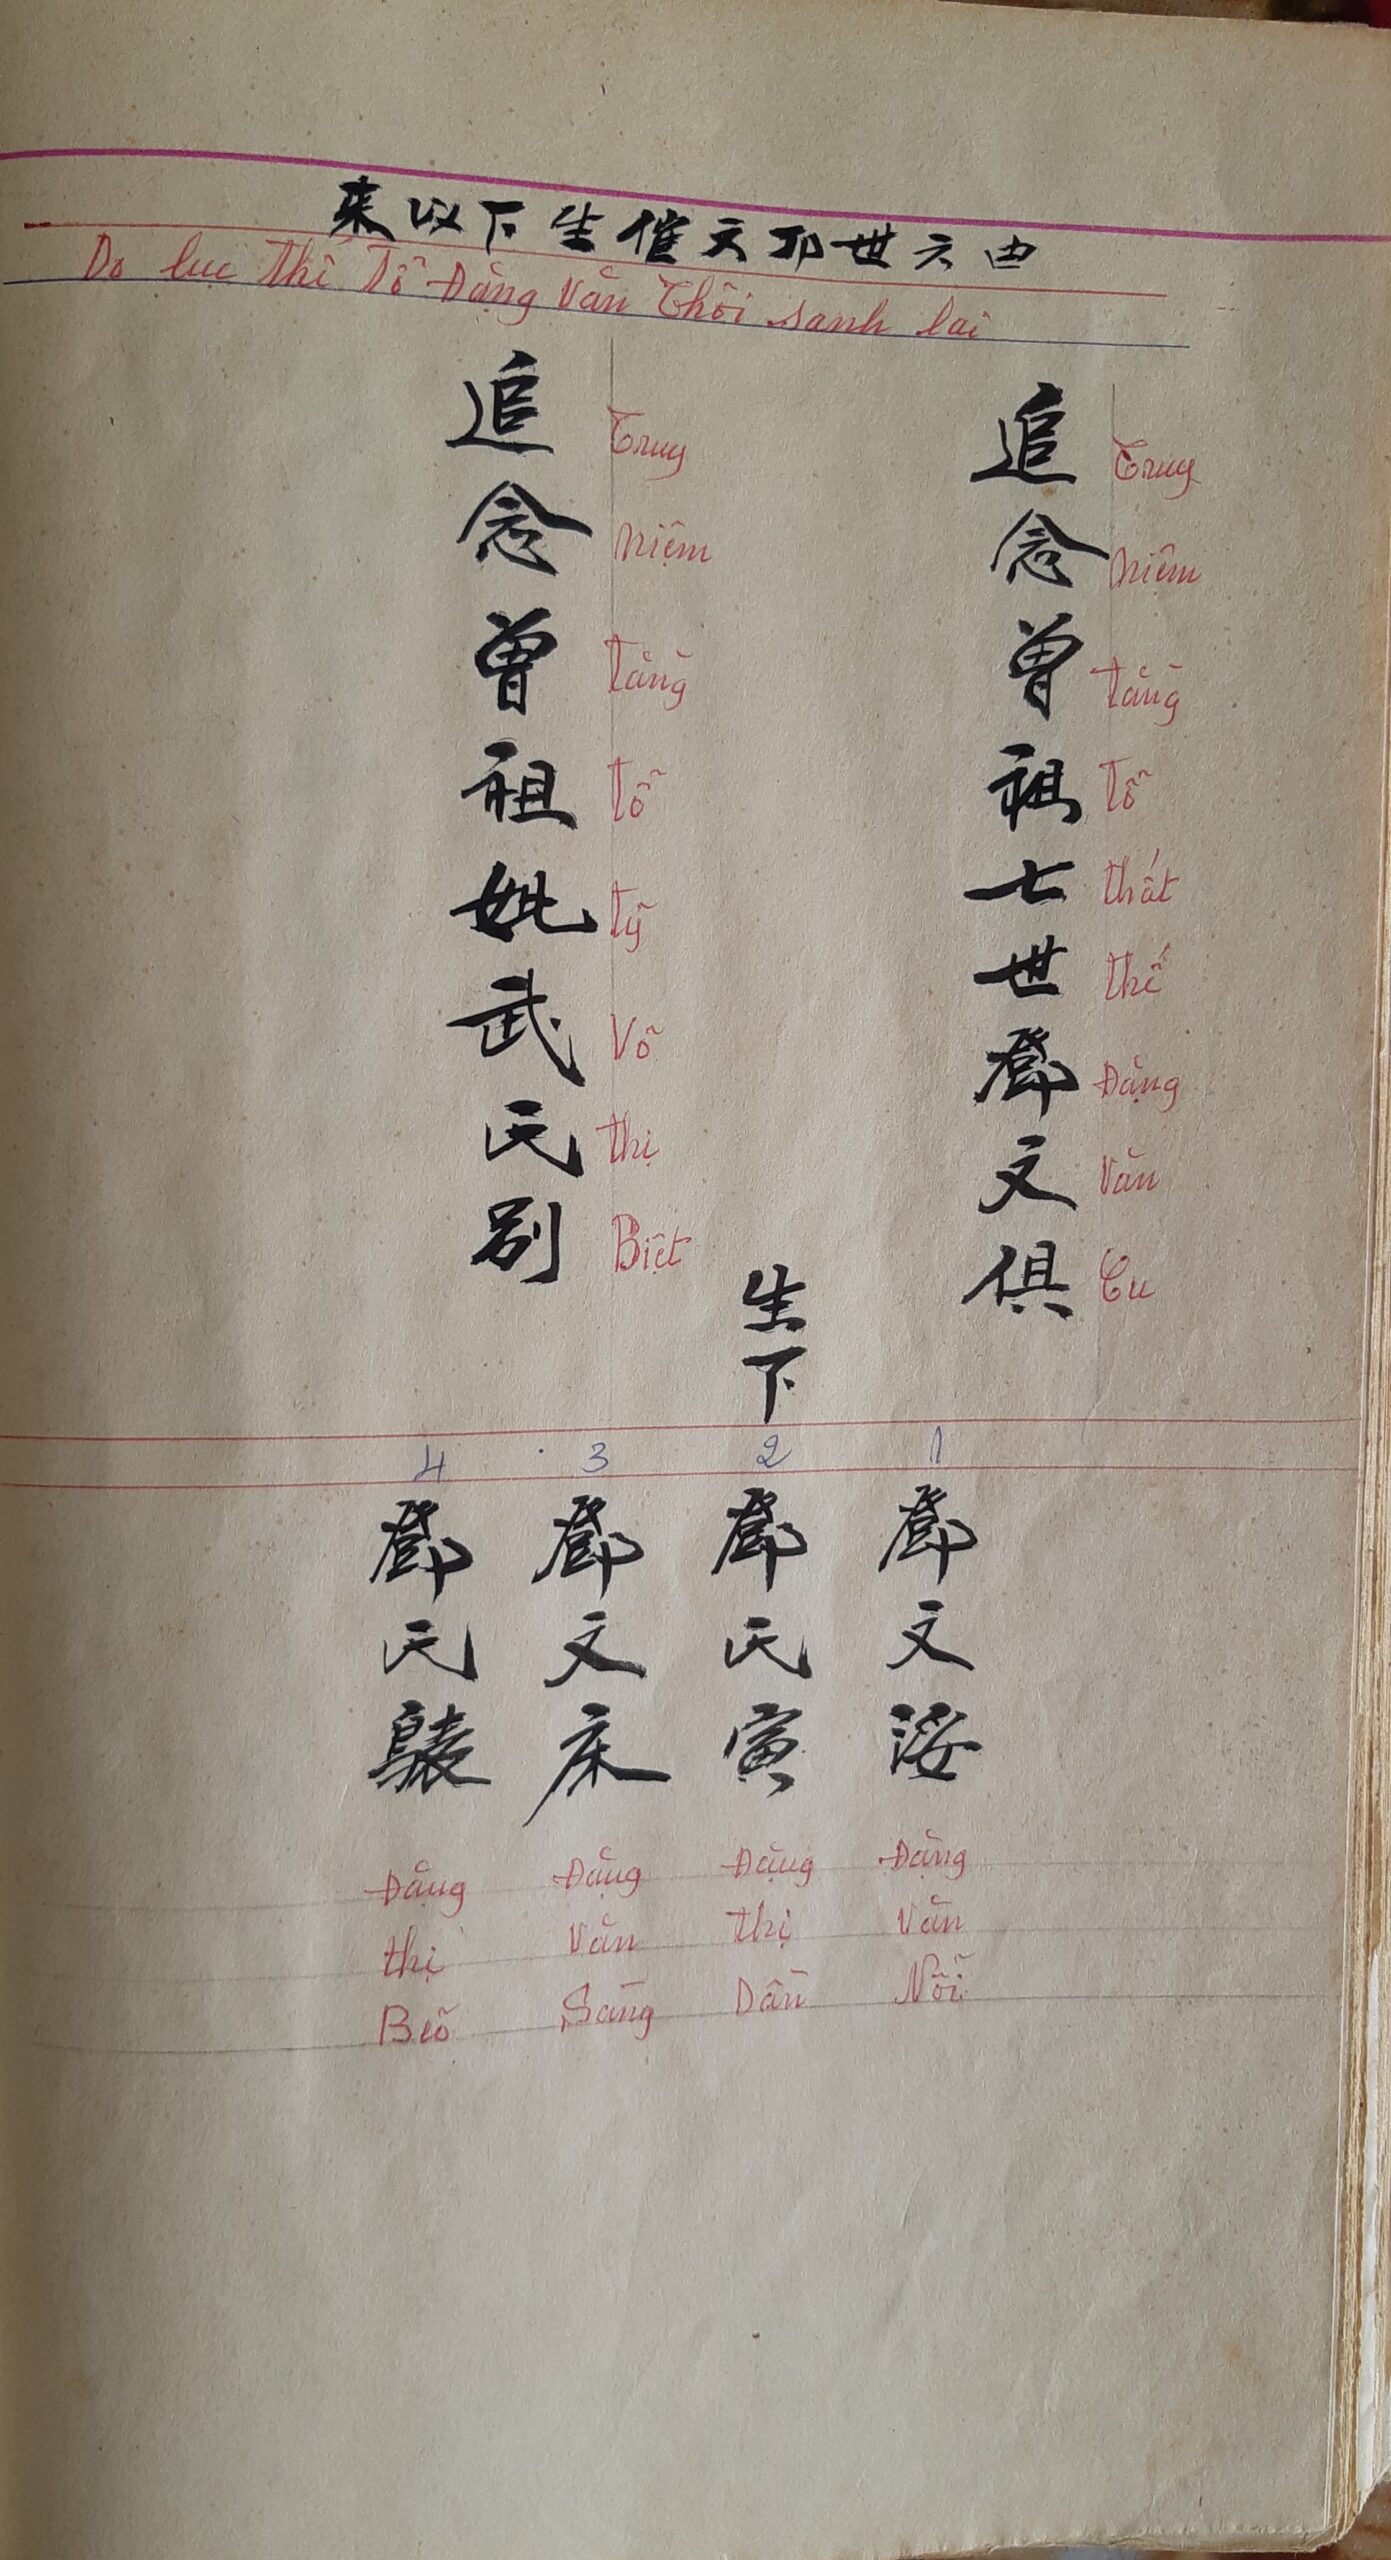 由六世邓文催生下以来
Do lục thế Tổ Đặng Văn Thôi sanh lai
追念曾祖七世鄧文俱
Truy niệm tằng tổ thất thế Đặng Văn Cu
追念曾祖妣武氏别
Truy niệm tằng tổ tỷ Võ thị Biệt
生下
1 2 3 4
鄧文浽
鄧氏寅
鄧文床
鄧氏
Đặng Văn Nỗi
Đặng thị Dần
Đặng Văn Sàng
Đặng thị Beõ